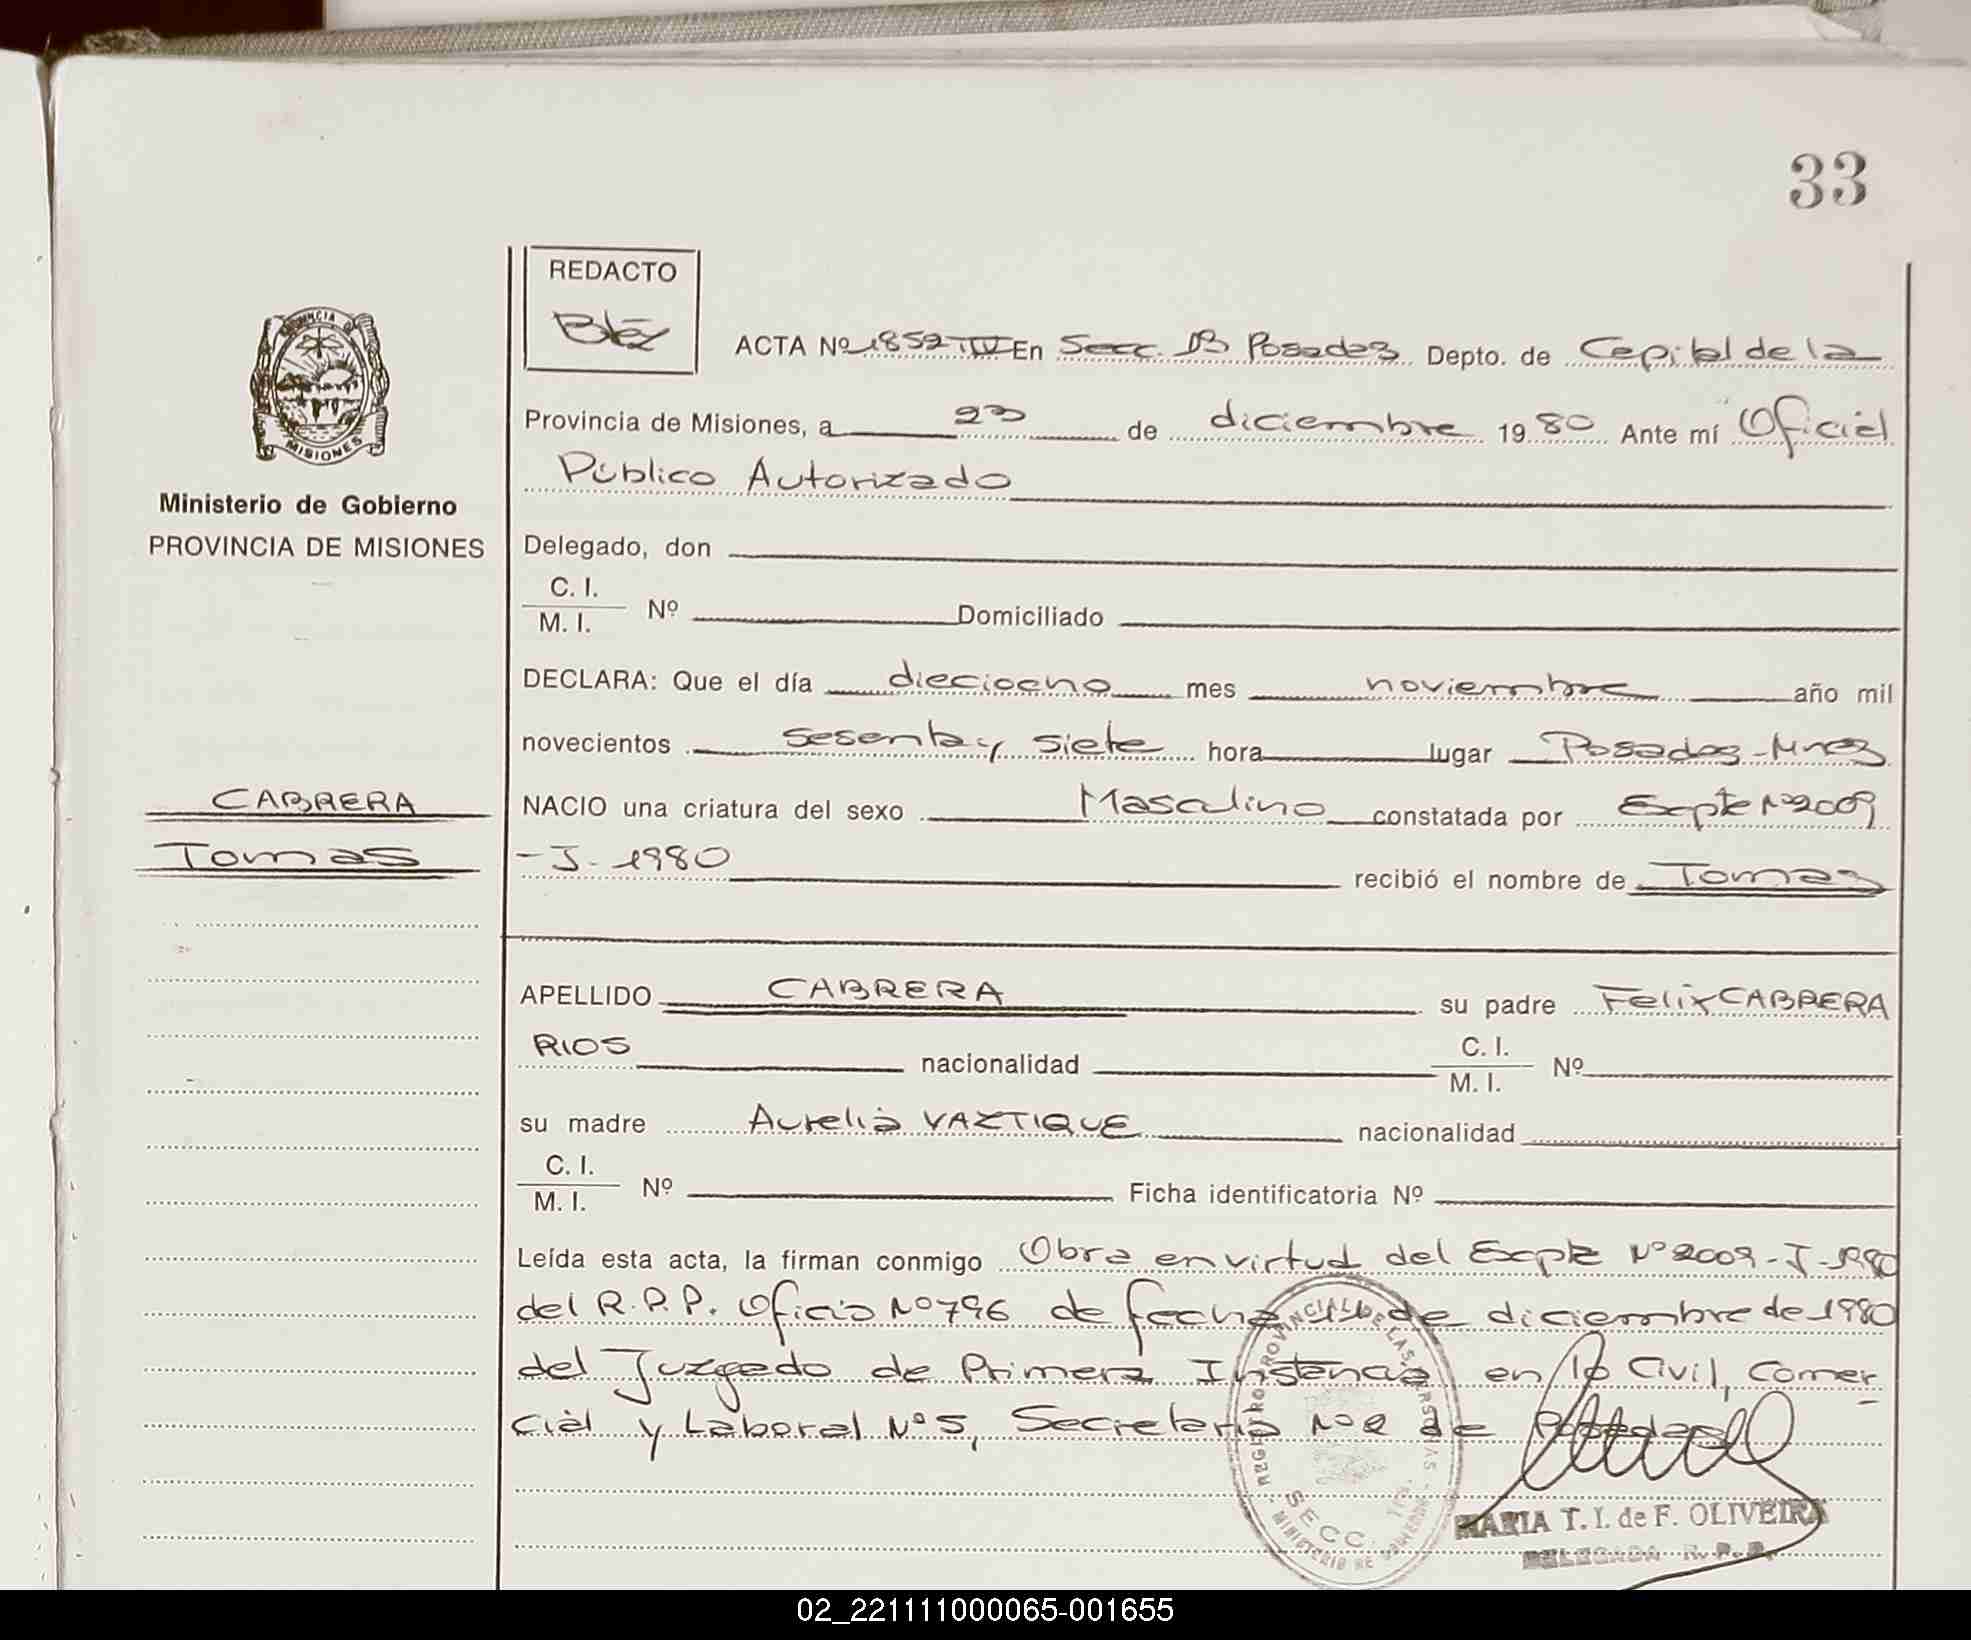 33
REDACTO
ACTA Nº 1852 TIV En Secc. 1B Posadas Depto. de Capital de la
Provincia de Misiones, a 23 de diciembre 1980 Ante mí Oficial
Público Autorizado
MISIONES
Ministerio de Gobierno
PROVINCIA DE MISIONES
Delegado, don
C. I.
M. I. Nº Domiciliado
DECLARA: Que el día dieciocho mes noviembre año mil
novecientos sesenta y siete hora lugar Posadas-Mnes
CABRERA
Tomas
NACIO una criatura del sexo Masculino constatada por Expte Nº 2009
-J-1980 recibió el nombre de Tomas
APELLIDO CABRERA su padre Felix CABRERA
RIOS nacionalidad C. I.
M. I. Nº
su madre Aurelia VAZTIQUE nacionalidad
C. I.
M. I. Nº Ficha identificatoria Nº
Leída esta acta, la firman conmigo Obra en virtud del Expte Nº 2009-J-1980
del R.P.P. Oficio Nº 796 de fecha 11 de diciembre de 1980
del Juzgado de Primera Instancia en lo Civil, Comer-
cial y Laboral Nº 5, Secretaria Nº 2 de Posadas
SECC.
MARIA T. I. de F. OLIVEIRA
DELEGADA R. P. P.
02_221111000065-001655